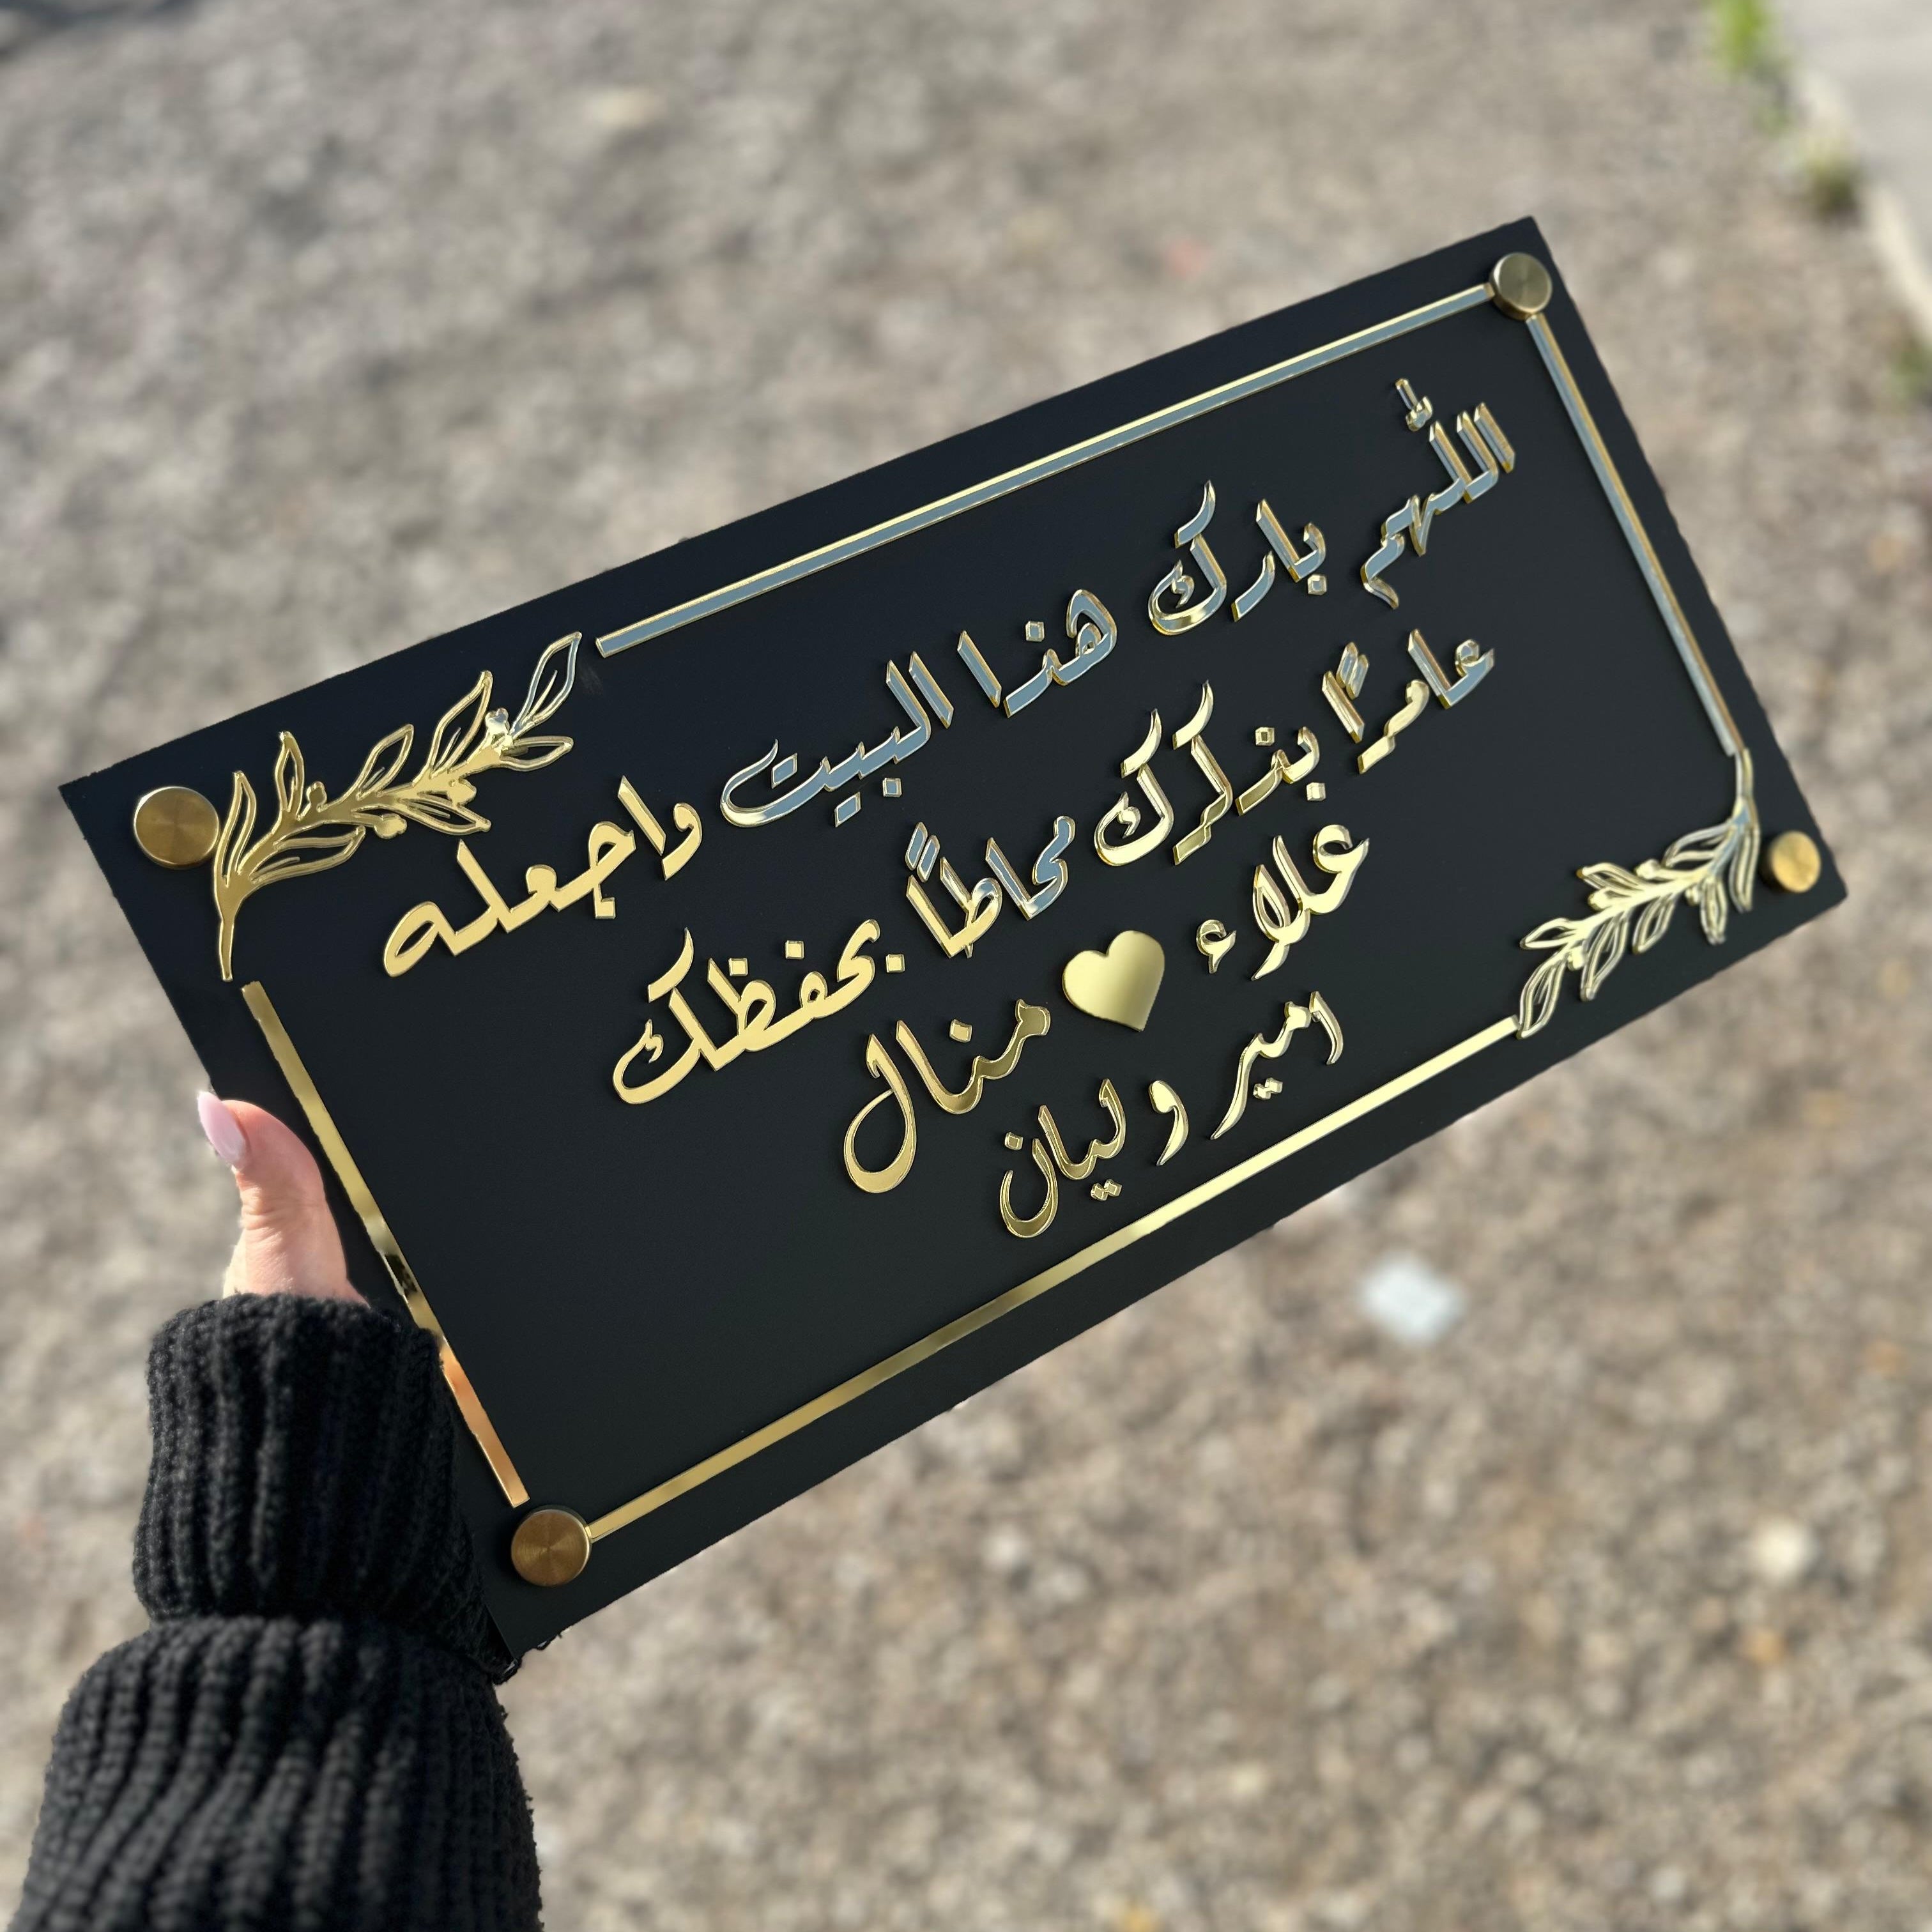 اللّٰهم بارك هذا البيت واجعله
عامرًا بذكرك محاطاً بحفظك
علاء منال
امير و ليان